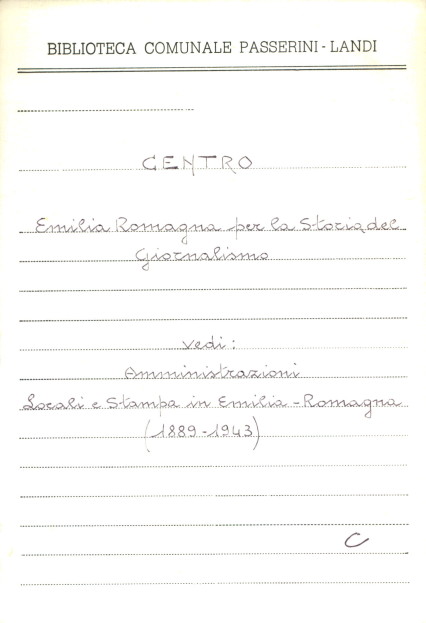 BIBLIOTECA COMUNALE PASSERINI - LANDI
CENTRO
Emilia Romagna per la Storia del
Giornalismo
vedi :
Amministrazioni
Locali e Stampa in Emilia - Romagna
(1889 - 1943)
C